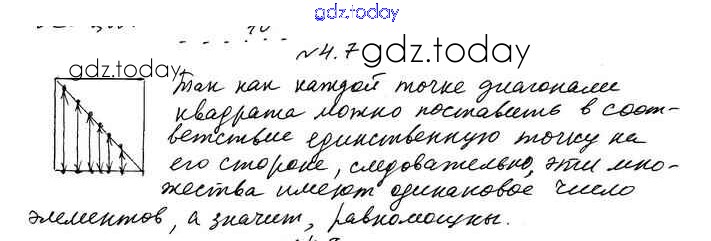 gdz.today
№4.7 gdz.today
gdz.today
Так как каждой точке диагонали
квадрата можно поставить в соот-
ветствие единственную точку на
его стороне, следовательно, эти мно-
жества имеют одинаковое число
элементов, а значит, равномощны.